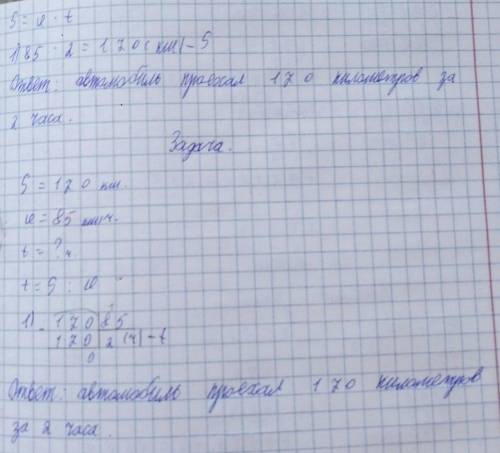 S = v · t
1) 85 · 2 = 170 (км) - S
Ответ: автомобиль проехал 170 километров за
2 часа.
Задача.
S = 170 км.
v = 85 км/ч.
t = ? ч
t = S : v
1) - 170 | 85
170 | 2 (ч) - t
0
Ответ: автомобиль проехал 170 километров
за 2 часа.